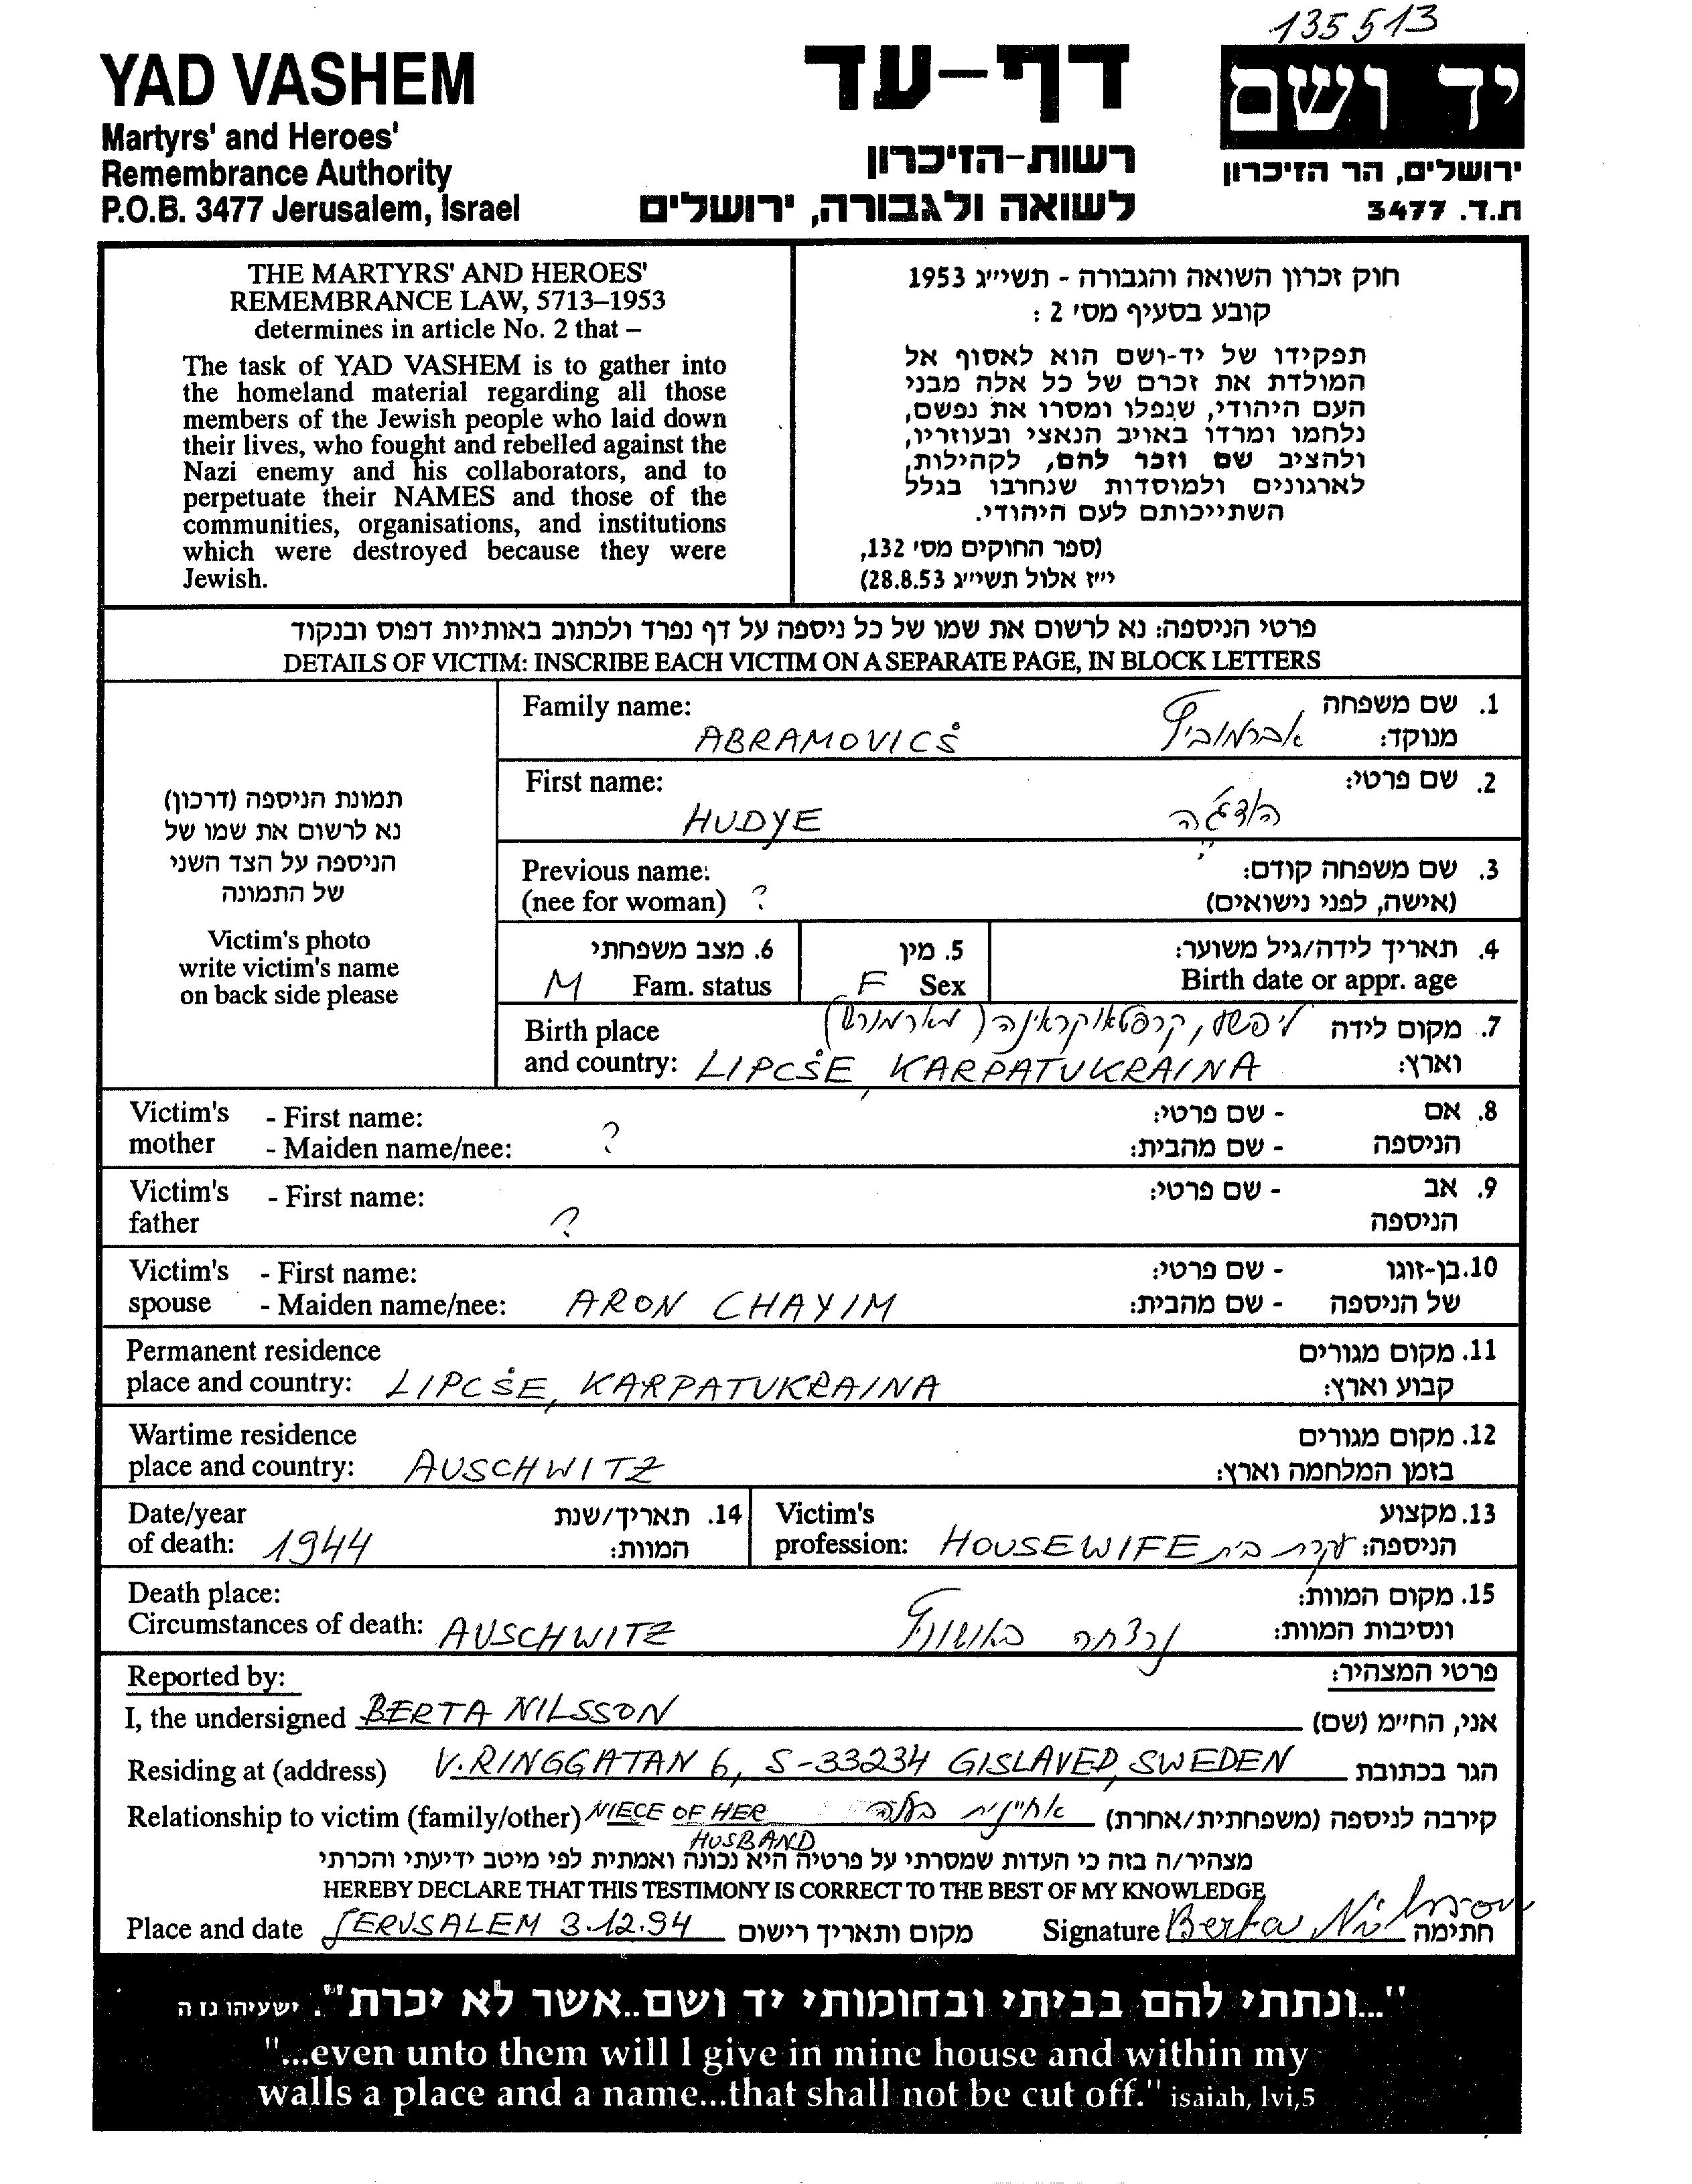 135513
YAD VASHEM
Martyrs' and Heroes'
Remembrance Authority
P.O.B. 3477 Jerusalem, Israel
דף-עד
רשות-הזיכרון
לשואה ולגבורה, ירושלים
יד ושם
ירושלים, הר הזיכרון
ת.ד. 3477
THE MARTYRS' AND HEROES'
REMEMBRANCE LAW, 5713–1953
determines in article No. 2 that –
The task of YAD VASHEM is to gather into
the homeland material regarding all those
members of the Jewish people who laid down
their lives, who fought and rebelled against the
Nazi enemy and his collaborators, and to
perpetuate their NAMES and those of the
communities, organisations, and institutions
which were destroyed because they were
Jewish.
חוק זכרון השואה והגבורה - תשי״ג 1953
קובע בסעיף מס׳ 2 :
תפקידו של יד-ושם הוא לאסוף אל
המולדת את זכרם של כל אלה מבני
העם היהודי, שנפלו ומסרו את נפשם,
נלחמו ומרדו באויב הנאצי ובעוזריו,
ולהציב שם וזכר להם, לקהילות,
לארגונים ולמוסדות שנחרבו בגלל
השתייכותם לעם היהודי.
(ספר החוקים מס׳ 132,
י״ז אלול תשי״ג 28.8.53)
פרטי הניספה: נא לרשום את שמו של כל ניספה על דף נפרד ולכתוב באותיות דפוס ובנקוד
DETAILS OF VICTIM: INSCRIBE EACH VICTIM ON A SEPARATE PAGE, IN BLOCK LETTERS
תמונת הניספה (דרכון)
נא לרשום את שמו של
הניספה על הצד השני
של התמונה
Victim's photo
write victim's name
on back side please
Family name: 1. שם משפחה
ABRAMOVICŠ אברמוביץ מנוקד:
First name: 2. שם פרטי:
HUDYE הודג'ה
Previous name: 3. שם משפחה קודם:
(nee for woman) ? (אישה, לפני נישואים)
6. מצב משפחתי 5. מין 4. תאריך לידה/גיל משוער:
M Fam. status F Sex Birth date or appr. age
Birth place ליפשע, קרפטאוקראינה (מארמורש) 7. מקום לידה
and country: LIPCŠE, KARPATUKRAINA וארץ:
Victim's - First name: - שם פרטי: 8. אם
mother - Maiden name/nee: ? - שם מהבית: הניספה
Victim's - First name: - שם פרטי: 9. אב
father ? הניספה
Victim's - First name: - שם פרטי: 10. בן-זוגו
spouse - Maiden name/nee: ARON CHAYIM - שם מהבית: של הניספה
Permanent residence 11. מקום מגורים
place and country: LIPCŠE, KARPATUKRAINA קבוע וארץ:
Wartime residence 12. מקום מגורים
place and country: AUSCHWITZ בזמן המלחמה וארץ:
Date/year 14. תאריך/שנת Victim's 13. מקצוע
of death: 1944 המוות: profession: HOUSEWIFE עקרת בית הניספה:
Death place: 15. מקום המוות:
Circumstances of death: AUSCHWITZ נרצחה באושוויץ ונסיבות המוות:
Reported by: פרטי המצהיר:
I, the undersigned BERTA NILSSON אני, החי״מ (שם)
Residing at (address) V. RINGGATAN 6, S-33234 GISLAVED, SWEDEN הגר בכתובת
Relationship to victim (family/other) NIECE OF HER אחיינית בעלה קירבה לניספה (משפחתית/אחרת)
HUSBAND
מצהיר/ה בזה כי העדות שמסרתי על פרטיה היא נכונה ואמתית לפי מיטב ידיעתי והכרתי
HEREBY DECLARE THAT THIS TESTIMONY IS CORRECT TO THE BEST OF MY KNOWLEDGE
Place and date JERUSALEM 3.12.94 מקום ותאריך רישום Signature Berta Nilsson חתימה
"...ונתתי להם בביתי ובחומותי יד ושם..אשר לא יכרת". ישעיהו נו ה
"...even unto them will I give in mine house and within my
walls a place and a name...that shall not be cut off." isaiah, lvi,5